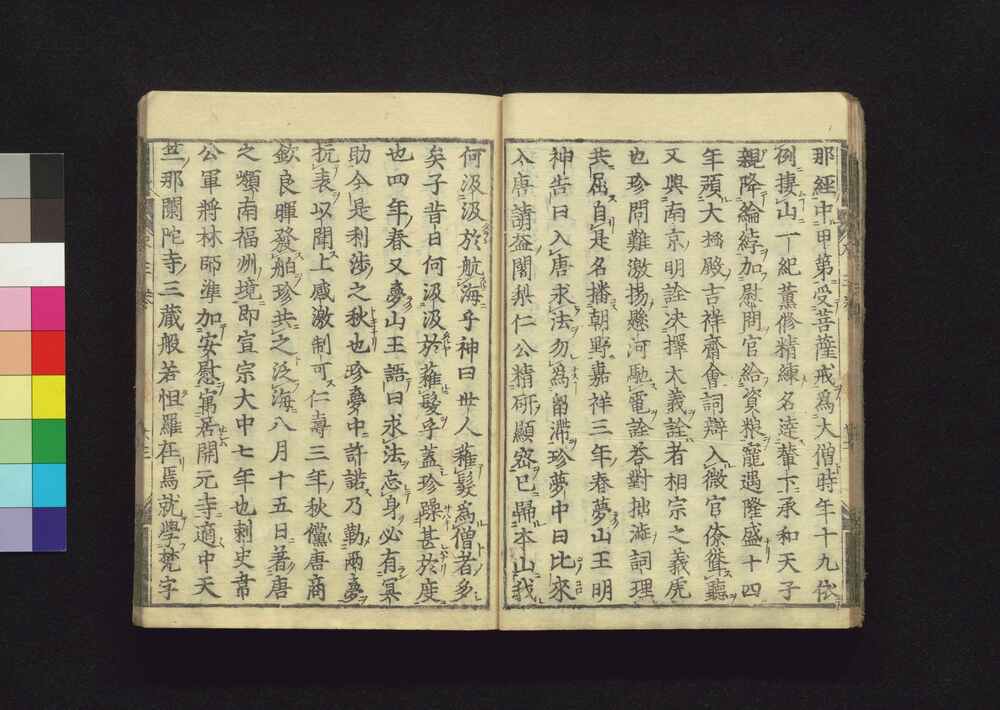 那經中甲第受菩薩戒爲大僧時年十九依
例捿山一紀薰修精練名達輦下承和天子
親降綸綍加慰問官給資粮寵遇隆盛十四
年預大極殿吉祥齋會詞辯入微官僚聳聽
又與南京明詮决擇大義詮者相宗之義虎
也珍問難激揚懸河馳電詮荅對拙澁詞理
共屈自是名播朝野嘉祥三年春夢山王明
神告曰入唐求法勿爲留滯珍夢中曰比來
入唐請益闍梨仁公精研顯密已歸本山我
何汲汲於航海乎神曰世人薙髮爲僧者多
矣子昔日何汲汲於薙髮乎蓋珍躁甚於度
也四年春又夢山王語曰求法忘身必有冥
助今是利涉之秋也珍夢中許諾乃勒兩夢
抗表以聞上感激制可仁壽三年秋儻唐商
欽良暉發舶珍共之泛海八月十五日著唐
之嶺南福州境即宣宗大中七年也刺史韋
公軍將林師準加安慰寓居開元寺適中天
竺那闌陀寺三藏般若怛羅在焉就學梵字